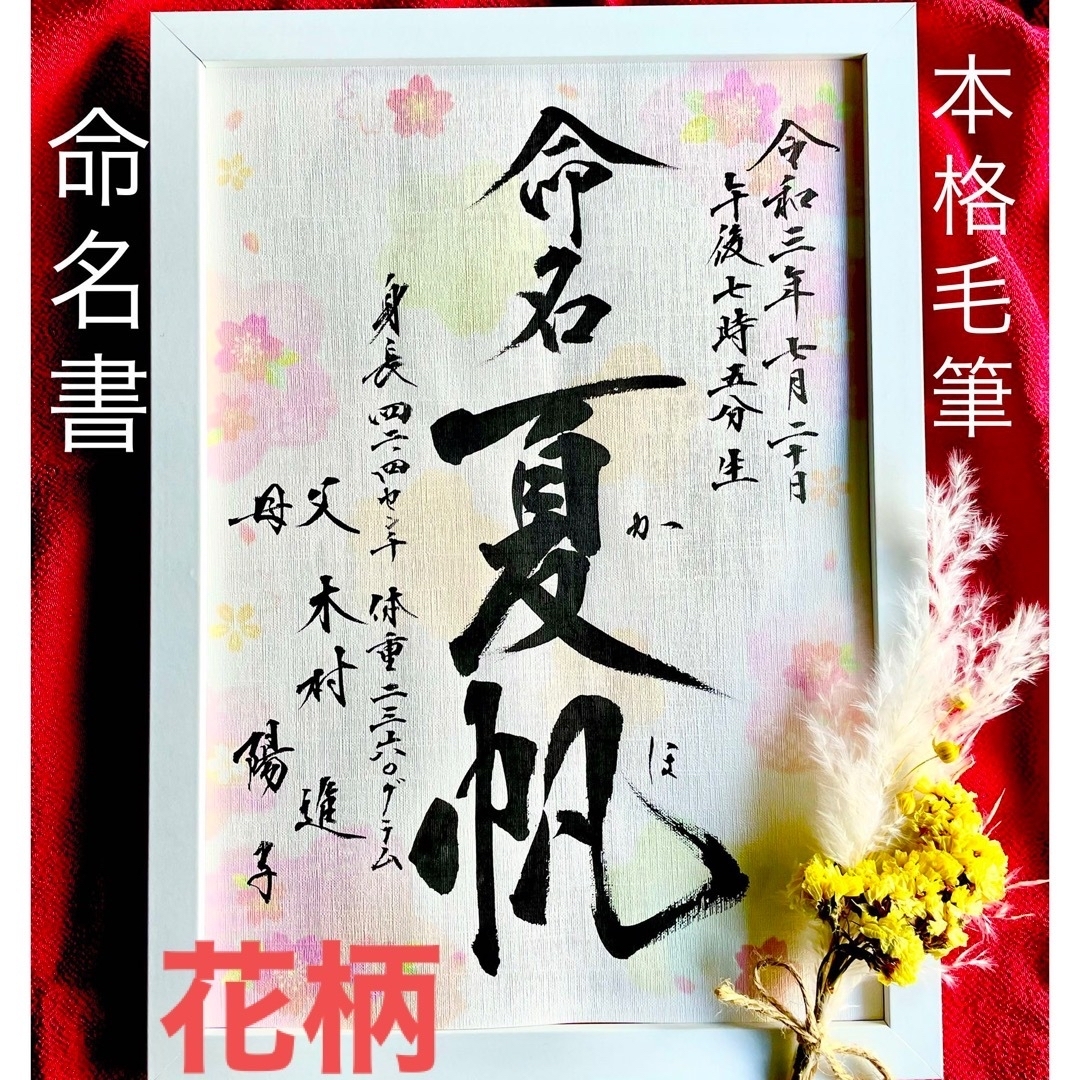 本格毛筆
命名書
令和三年七月二十日
午後七時五分生
命名
夏帆
かほ
身長 四二・四センチ 体重 二三六〇グラム
父 木村 進
母 陽子
花柄